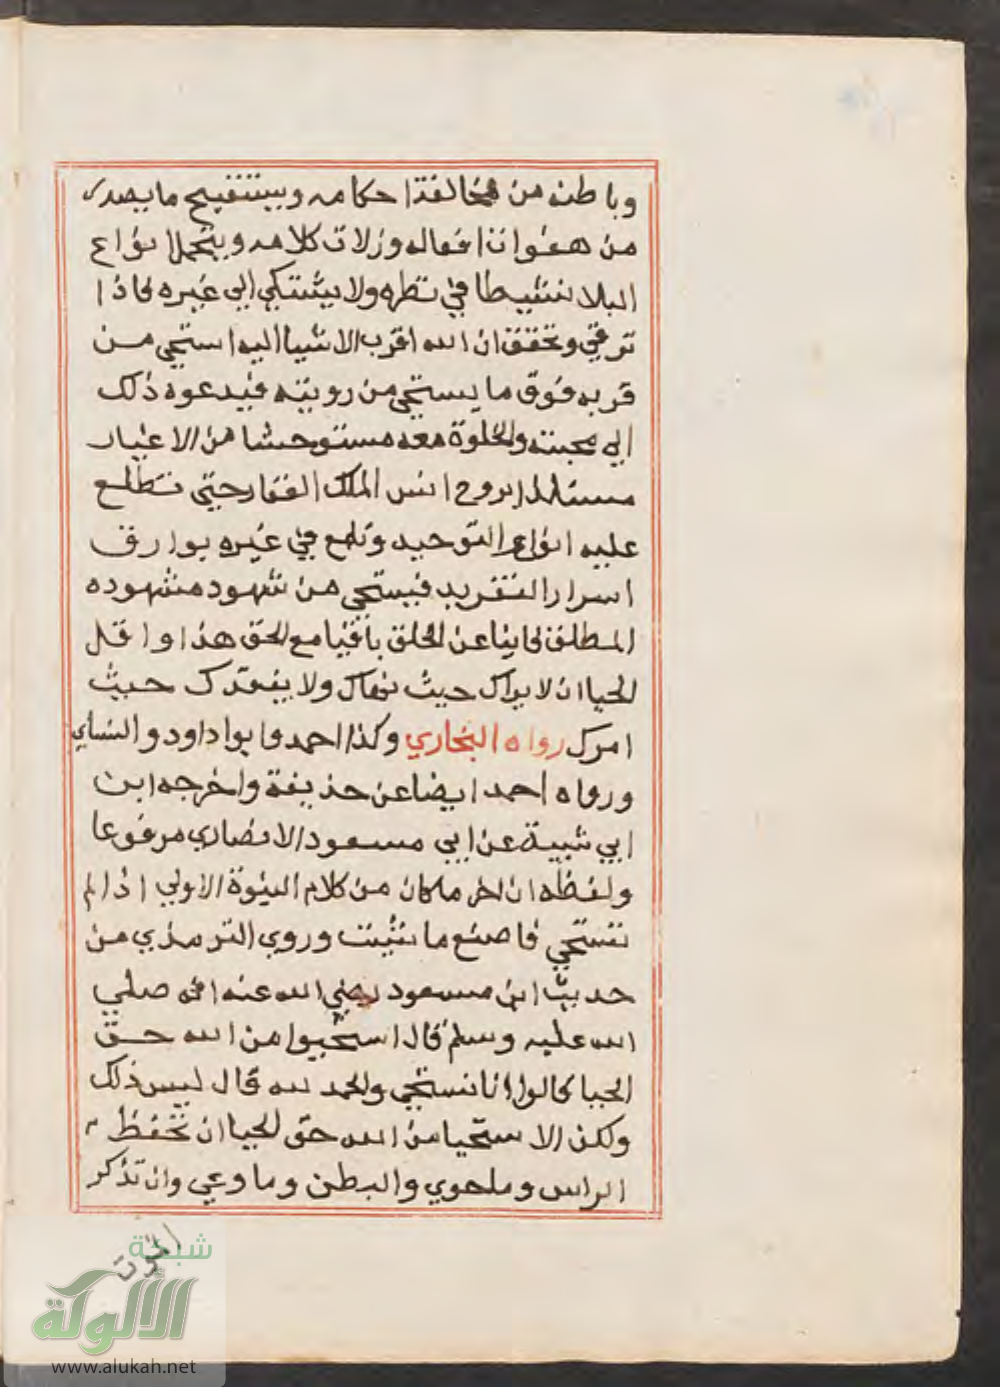 وباطنه من مخالفة احكامه ويستقبح ما يصدر
من هفوات افعاله وزلات كلامه ويتحمل انواع
البلا تنشيطا في نظره ولا يشتكي الي غيره فاذا
ترقي وتحقق ان الله اقرب الاشيا اليه استحي من
قربه فوق ما يستحي من رويته فيدعوه ذلك
الي محبته والخلوة معه مستوحشا من الاغيار
مستلذا بروح انس الملك الغفار حتي تطلع
عليه انوار التوحيد وتلمع في غيره بوارق
اسرار التفريد فيستحي من شهود مشهوده
المطلق فانيا عن الخلق باقيا مع الحق هذا واقل
الحيا ان لا يراك حيث نهاك ولا يفقدك حيث
امرك رواه البخاري وكذا احمد وابوا داود والنساي
ورواه احمد ايضا عن حذيفة واخرجه ابن
ابي شيبة عن ابي مسعود الانصاري مرفوعا
ولفظه ان اخر ما كان من كلام النبوة الاولي اذا لم
تستحي فاصنع ما شيت وروي الترمذي من
حديث ابن مسعود رضي الله عنه انه صلي
الله عليه وسلم قال استحيوا من الله حق
الحيا قالوا انا نستحي والحمد لله قال ليس ذلك
ولكن الاستحيا من الله حق الحيا ان تحفظ
الراس وما حوي والبطن وما وعي وان تذكر
الموت
شبكة
الألوكة
www.alukah.net